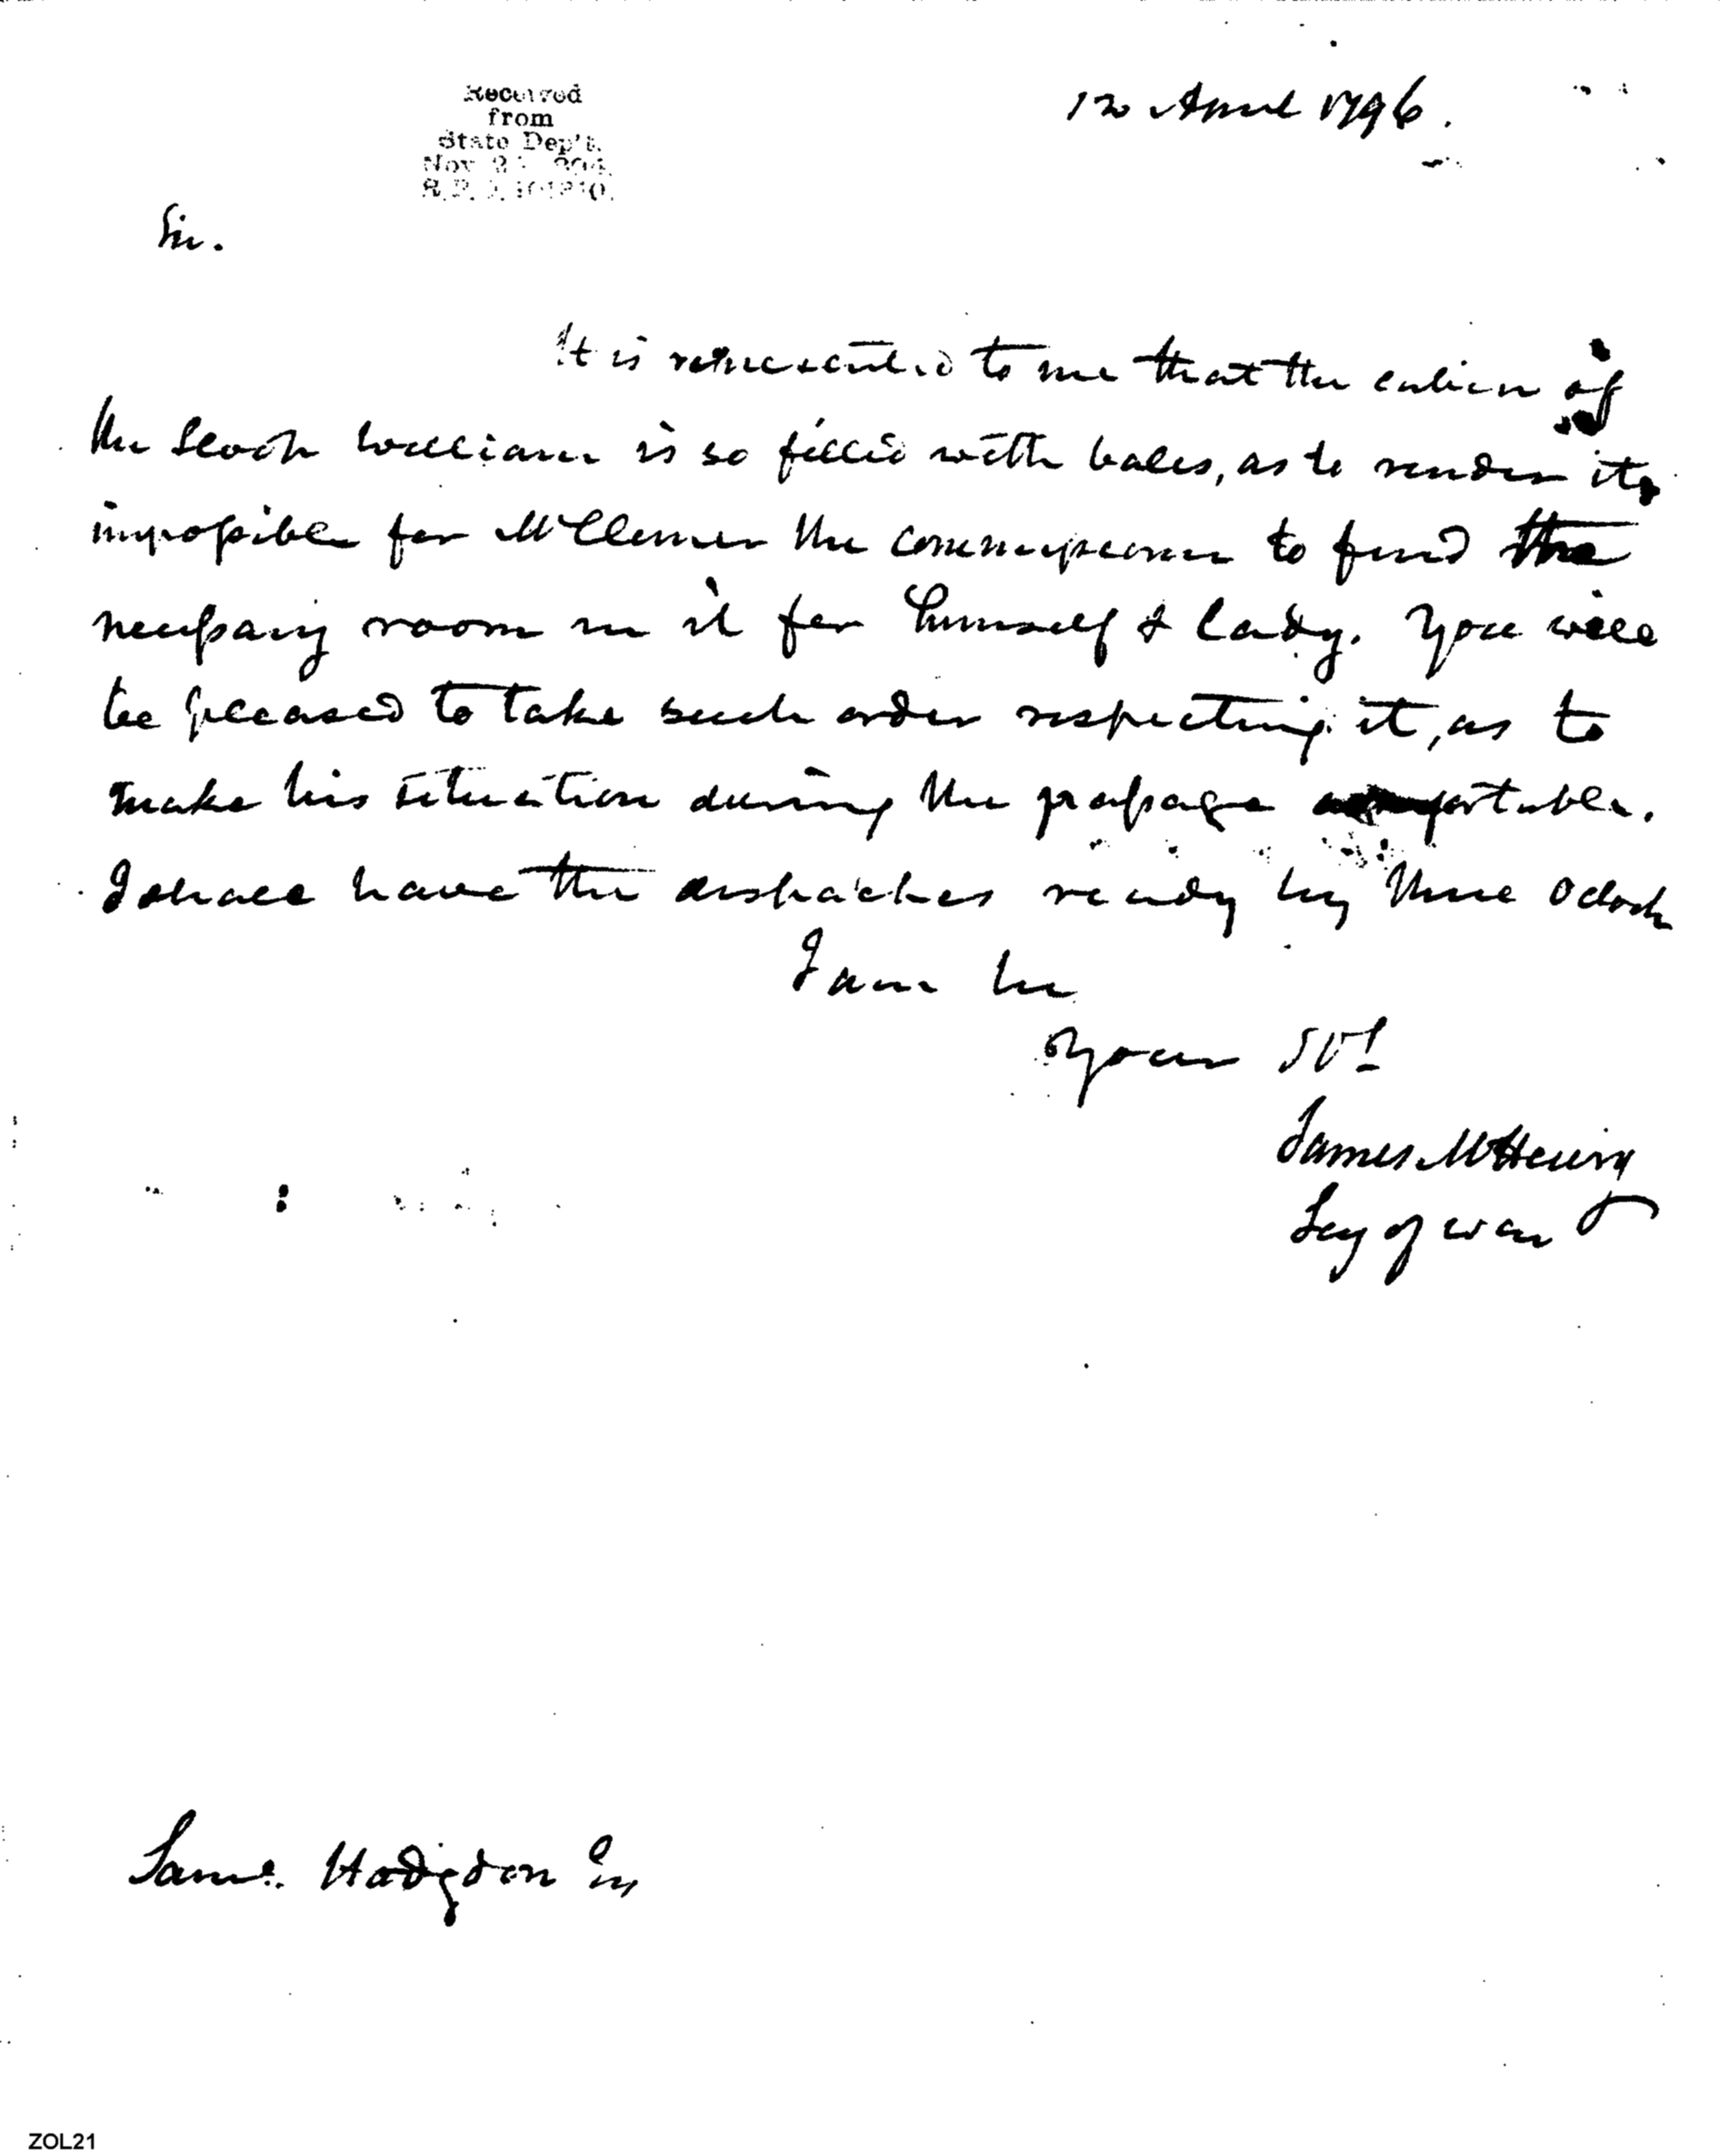 Received
from
State Dep't.
Nov
12 April 1796.
Sir.
It is represented to me that the cabin of
the Sloop William is so filled with bales, as to render it
impossible for Mr Clymer the commissioner to find the
necessary room in it for himself & lady. You will
be pleased to take such order respecting it, as to
make his situation during the passage comfortable.
I shall have the dispatches ready by three Oclock
I am Sir
your St
James McHenry
Secy of war
Saml. Hodgdon Esq
ZOL21